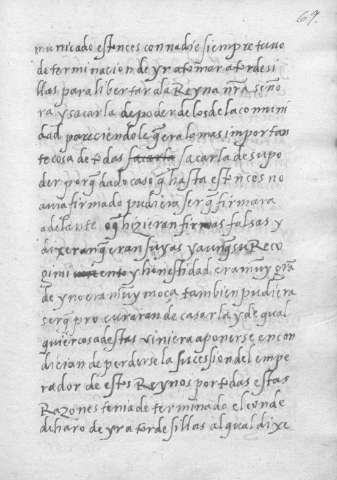 69.
municado estonces con nadie siempre tuvo
determinacion de yr a tomar a tordesi
llas para libertar a la Reyna nr̃a señõ
ra y sacarla de poder de los de la comuni
dad pareciendole q̃ era lo mas importan
te cosa de todas sacarla sacarla de su po
der porq̃ dado caso q̃ hasta estonces no
avia firmado pudiera ser q̃ firmara
adelante o q̃ hizieran firmas falsas y
dixeran q̃ eran suyas y aunq̃ su Reco
gimi y honestidad era muy grã
de y no era muy moça tambien pudiera
ser q̃ procuraran de casarla y de qual
quier cosa destas viniera a ponerse en con
dicion de perderse la sucession del empe
rador de estos Reynos por todas estas
Razones tenia determinado el conde
de haro de yr a tordesillas al qual dixe